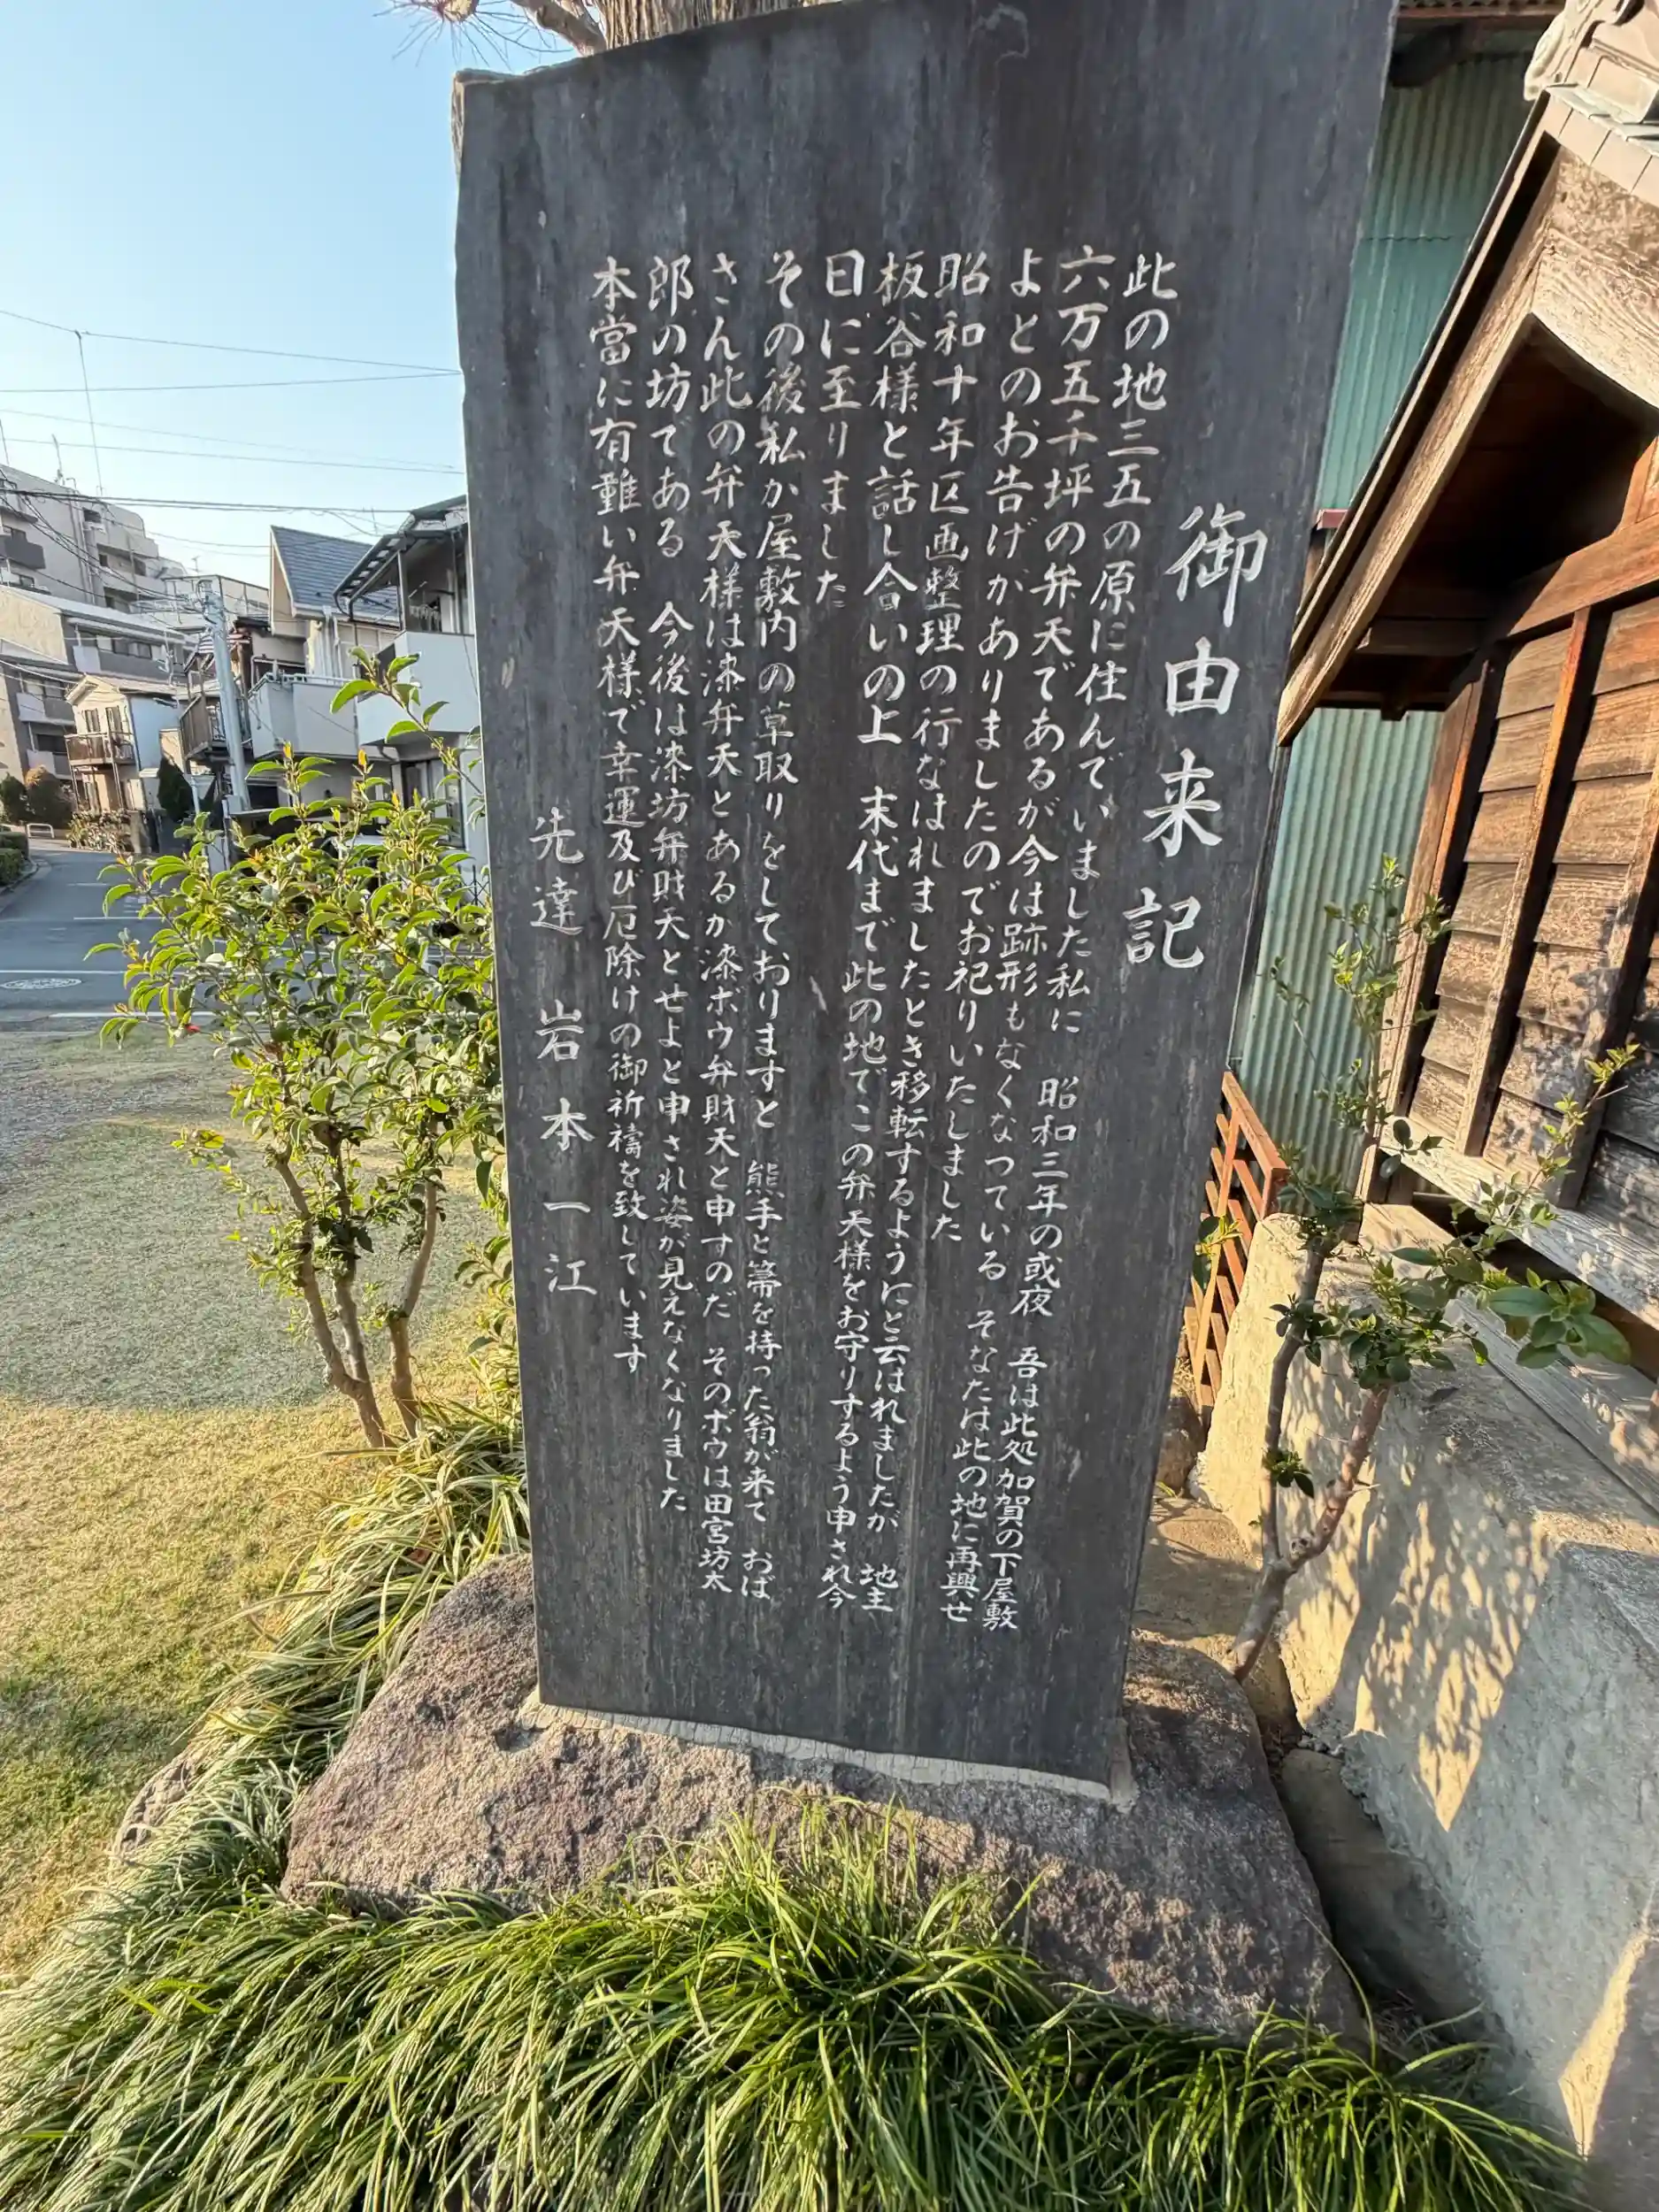 御由来記
此の地三五の原に住んでいました私に 昭和三年の或夜 吾は此処加賀の下屋敷
六万五千坪の弁天であるが今は跡形もなくなつている そなたは此の地に再興せ
よとのお告げがありましたのでお祀りいたしました
昭和十年区画整理の行なはれましたとき移転するようにと云はれましたが 地主
板谷様と話し合いの上 末代まで此の地でこの弁天様をお守りするよう申され今
日に至りました
その後私か屋敷内の草取りをしておりますと 熊手と箒を持った翁が来て おば
さん此の弁天様は漆弁天とあるか漆ボウ弁財天と申すのだ そのボウは田宮坊太
郎の坊である 今後は漆坊弁財天とせよと申され姿が見えなくなりました
本當に有難い弁天様で幸運及び厄除けの御祈禱を致しています
先達 岩本一江